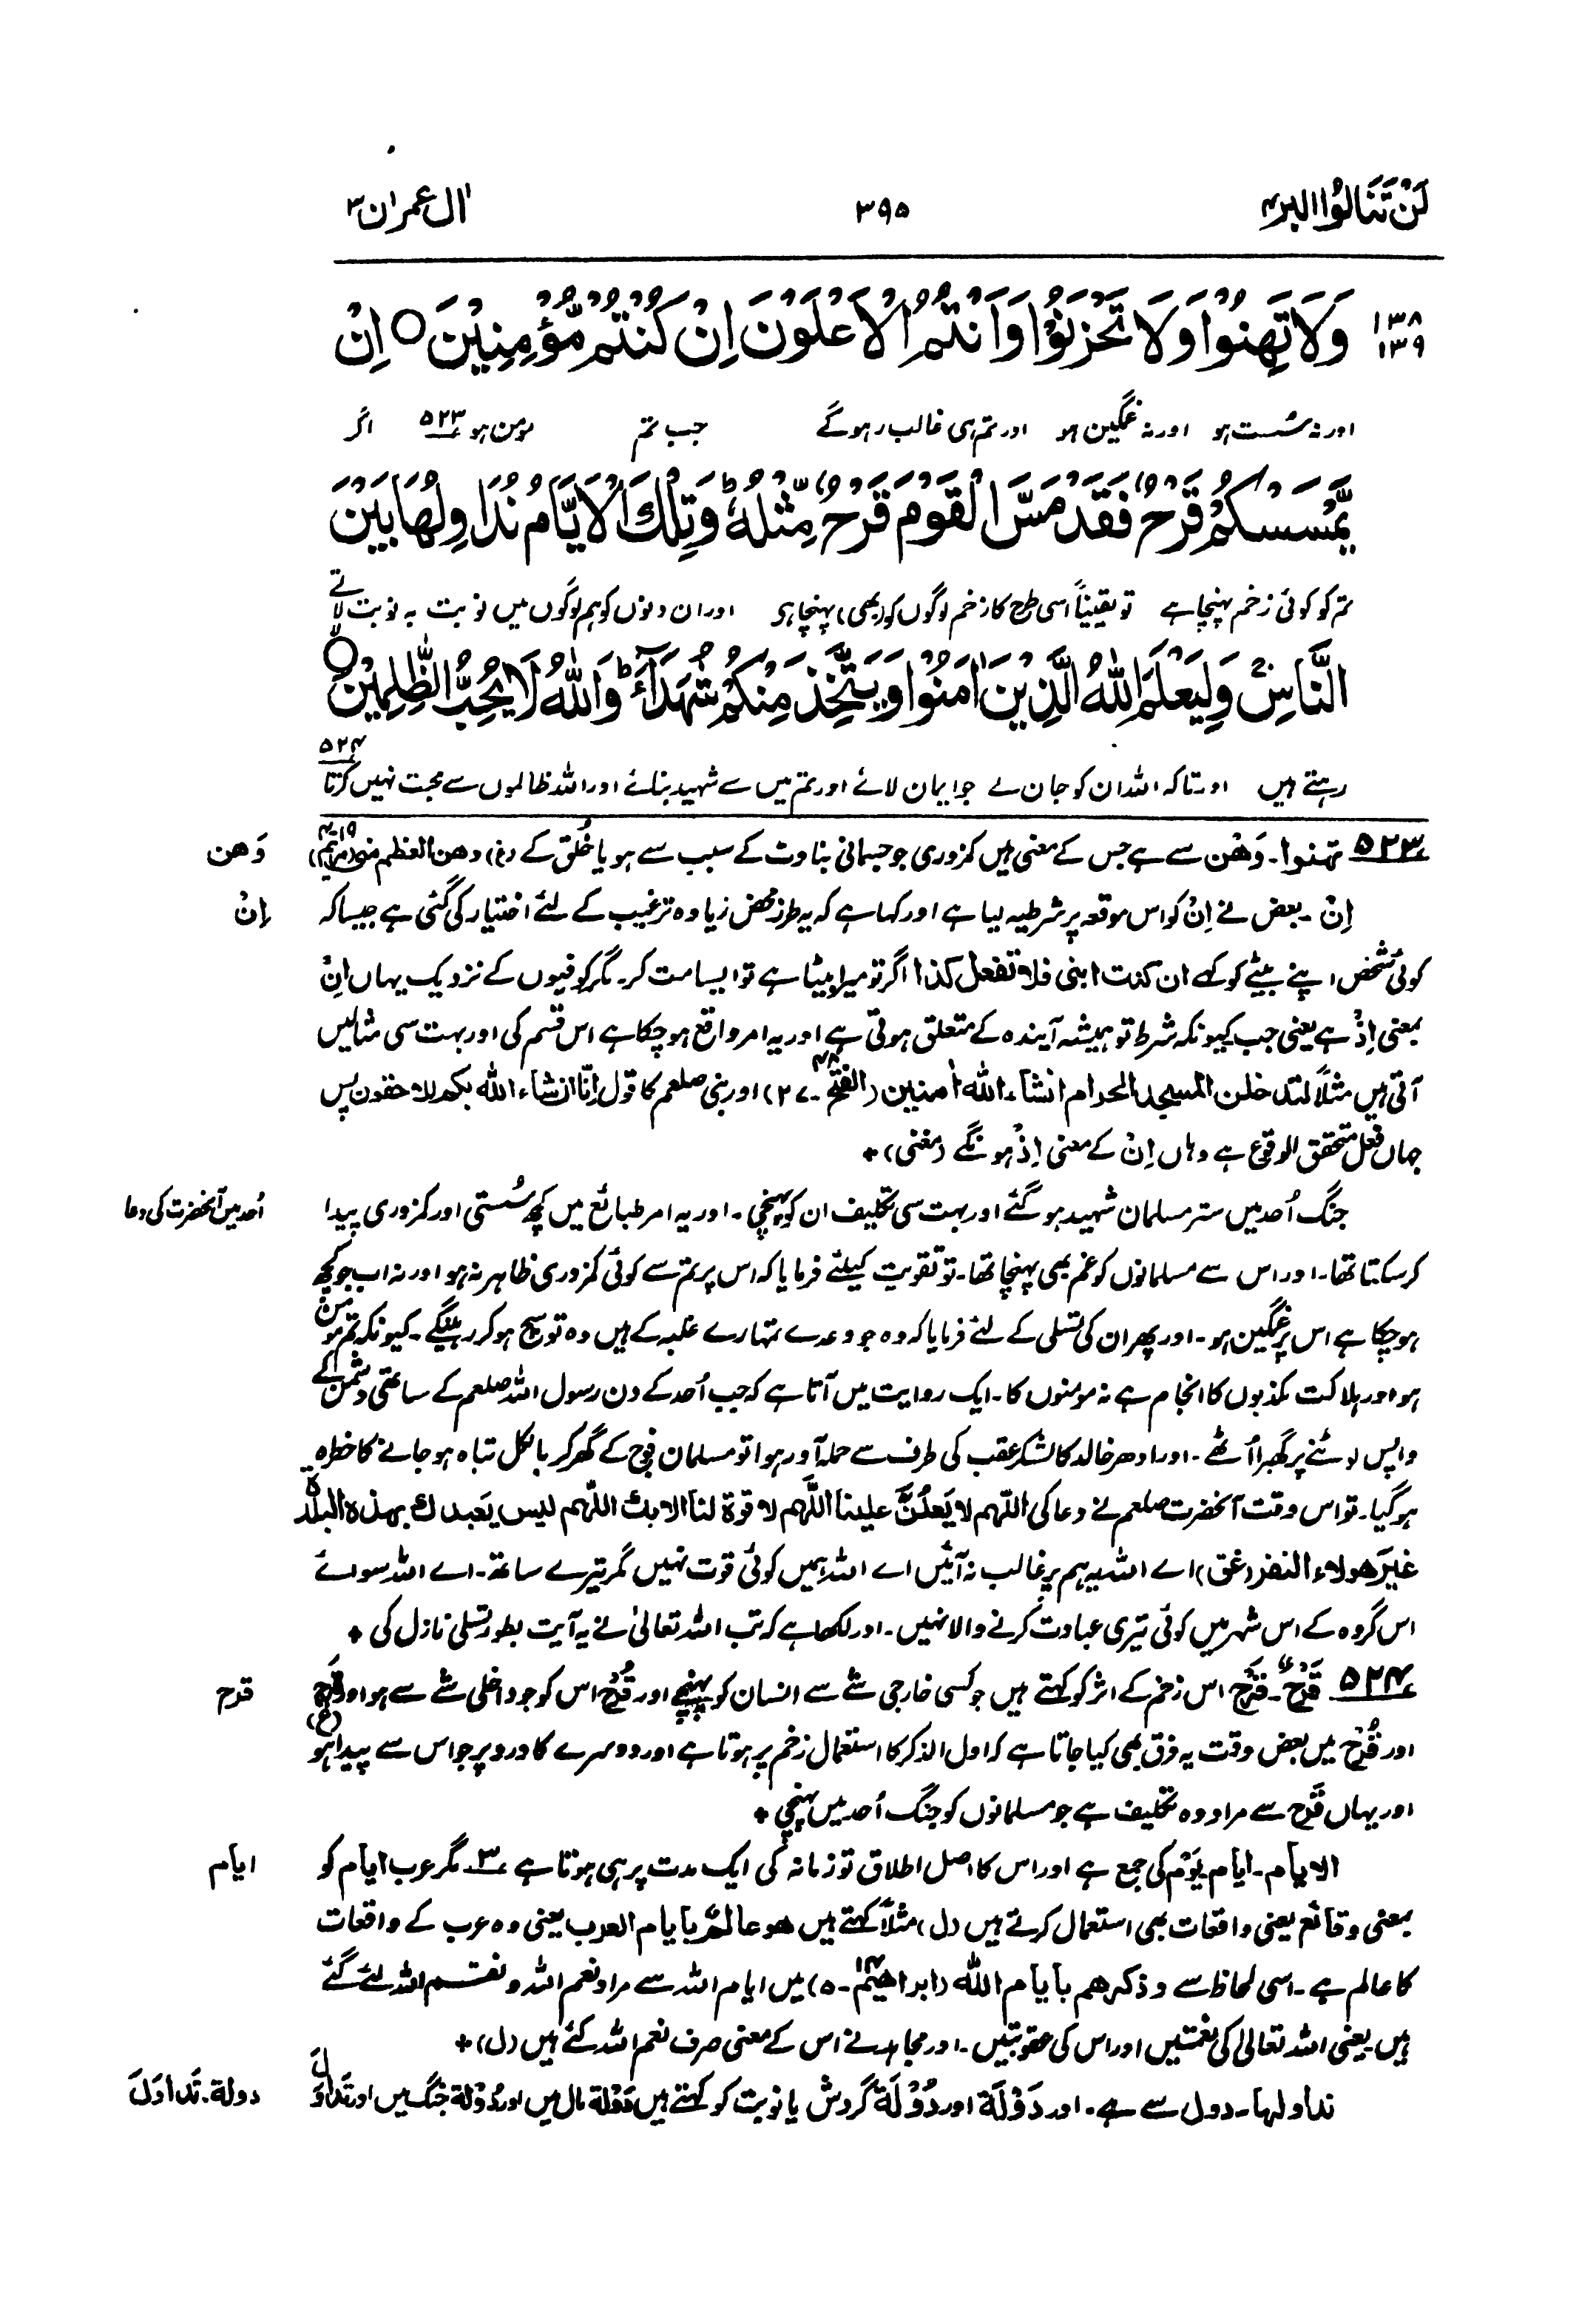 لَنْ تَنَالُوا البر ۴
۳۹۵
اٰل عمرٰن ۳
۱۳۸
۱۳۹
وَلَا تَهِنُوْا وَلَا تَحْزَنُوْا وَاَنْتُمُ الْاَعْلَوْنَ اِنْ كُنْتُمْ مُّؤْمِنِيْنَ ○ اِنْ
اور نہ سُست ہو اور نہ غمگین ہو اور تم ہی غالب رہو گے جب تم مومن ہو ۵۲۳ اگر
يَّمْسَسْكُمْ قَرْحٌ فَقَدْ مَسَّ الْقَوْمَ قَرْحٌ مِّثْلُهٗ ؕ وَتِلْكَ الْاَيَّامُ نُدَاوِلُهَا بَيْنَ
تم کو کوئی زخم پہنچا ہے تو یقیناً اسی طرح کا زخم لوگوں کو (بھی) پہنچا ہی اور ان دنوں کو ہم لوگوں میں نوبت بہ نوبت لاتے
النَّاسِ ۚ وَلِيَعْلَمَ اللّٰهُ الَّذِيْنَ اٰمَنُوْا وَيَتَّخِذَ مِنْكُمْ شُهَدَآءَ ؕ وَاللّٰهُ لَا يُحِبُّ الظّٰلِمِيْنَ ○
رہتے ہیں اور تاکہ اللہ ان کو جان لے جو ایمان لائے اور تم میں سے شہید بنائے اور اللہ ظالموں سے محبت نہیں کرتا ۵۲۴
۵۲۳ تهنوا۔ وَهْن سے ہے جس کے معنی ہیں کمزوری جو جسمانی بناوٹ کے سبب سے ہو یا خُلق کے (غ) وهن العظم منی (مریم ۱۹-۴)
وَهن
اِنْ ۔ بعض نے اِنْ کو اس موقعہ پر شرطیہ لیا ہے اور کہا ہے کہ یہ طرز محض زیادہ ترغیب کے لئے اختیار کی گئی ہے جیسا کہ
اِنْ
کوئی شخص اپنے بیٹے کو کہے ان کنت ابنی فلا تفعل کذا اگر تو میرا بیٹا ہے تو ایسا مت کر۔ مگر کوفیوں کے نزدیک یہاں اِنْ
بمعنی اِذْ ہے یعنی جب کیونکہ شرط تو ہمیشہ آیندہ کے متعلق ہوتی ہے اور یہ امر واقع ہو چکا ہے اس قسم کی اور بہت سی مثالیں
آتی ہیں مثلاً لتدخلن المسجد الحرام انشاء اللہ اٰمنین (الفتح ۴۸-۲۷) اور نبی صلعم کا قول اِنّا انشاء اللہ بکم لاحقون پس
جہاں فعل متحقق الوقوع ہے وہاں اِنْ کے معنی اِذْ ہونگے (مغنی) ٭
جنگ اُحد میں ستر مسلمان شہید ہو گئے اور بہت سی تکلیف ان کو پہنچی۔ اور یہ امر طبائع میں کچھ سُستی اور کمزوری پیدا
اُحد میں آنحضرت کی دعا
کر سکتا تھا۔ اور اس سے مسلمانوں کو غم بھی پہنچا تھا۔ تو تقویت کیلئے فرمایا کہ اس پر تم سے کوئی کمزوری ظاہر نہ ہو اور نہ اب جو کچھ
ہو چکا ہے اس پر غمگین ہو۔ اور پھر ان کی تسلی کے لئے فرمایا کہ وہ جو وعدے تمہارے غلبہ کے ہیں وہ تو سچ ہو کر رہینگے۔ کیونکہ تم مومن
ہو اور ہلاکت مکذبوں کا انجام ہے نہ مومنوں کا۔ ایک روایت میں آتا ہے کہ جب اُحد کے دن رسول اللہ صلعم کے ساتھی دشمن کے
واپس لوٹنے پر گھبرا اُٹھے۔ اور ادھر خالد کا لشکر عقب کی طرف سے حملہ آور ہوا تو مسلمان فوج کے گھر کر بالکل تباہ ہو جانے کا خطرہ
ہو گیا۔ تو اس وقت آنحضرت صلعم نے دعا کی اللّٰهم لا يَعلُنَّ علينا اللّٰهم لا قوة لنا الا بك اللّٰهم ليس يَعبدك بهذه البلدة
غيرَ هولاء النفر (غق) اے اللہ یہ ہم پر غالب نہ آئیں اے اللہ ہمیں کوئی قوت نہیں مگر تیرے ساتھ۔ اے اللہ سوائے
اس گروہ کے اس شہر میں کوئی تیری عبادت کرنے والا نہیں۔ اور لکھا ہے کہ تب اللہ تعالیٰ نے یہ آیت بطور تسلی نازل کی ٭
۵۲۴ قَرْحٌ۔ قَرْح اس زخم کے اثر کو کہتے ہیں جو کسی خارجی شے سے انسان کو پہنچے اور قُرْح اس کو جو داخلی شے سے ہو اور قَرْح
قرح
اور قُرْح میں بعض وقت یہ فرق بھی کیا جاتا ہے کہ اول الذکر کا استعمال زخم پر ہوتا ہے اور دوسرے کا درد پر جو اس سے پیدا ہو (غ)
اور یہاں قَرْح سے مراد وہ تکلیف ہے جو مسلمانوں کو جنگ اُحد میں پہنچی ٭
الایام۔ ایام یَوْم کی جمع ہے اور اس کا اصل اطلاق تو زمانہ کی ایک مدت پر ہی ہوتا ہے ۳ مگر عرب ایام کو
ایام
بمعنی وقائع یعنی واقعات بھی استعمال کرتے ہیں (ل) مثلاً کہتے ہیں هو عالمٌ بايام العرب یعنی وہ عرب کے واقعات
کا عالم ہے۔ اسی لحاظ سے و ذكرهم بأيام الله (ابراهیم ۱۴-۵) میں ایام اللہ سے مراد نعم اللہ و نقم اللہ لئے گئے
ہیں یعنی اللہ تعالی کی نعمتیں اور اس کی عقوبتیں۔ اور مجاہد نے اس کے معنی صرف نعم اللہ کئے ہیں (ل) ٭
نداولها۔ دول سے ہے۔ اور دَوْلَة اور دُوْلَة گردش یا نوبت کو کہتے ہیں دَوْلة مال میں اور دُوْلة جنگ میں اور تَداوَلَ
دولة۔ تَداوَلَ